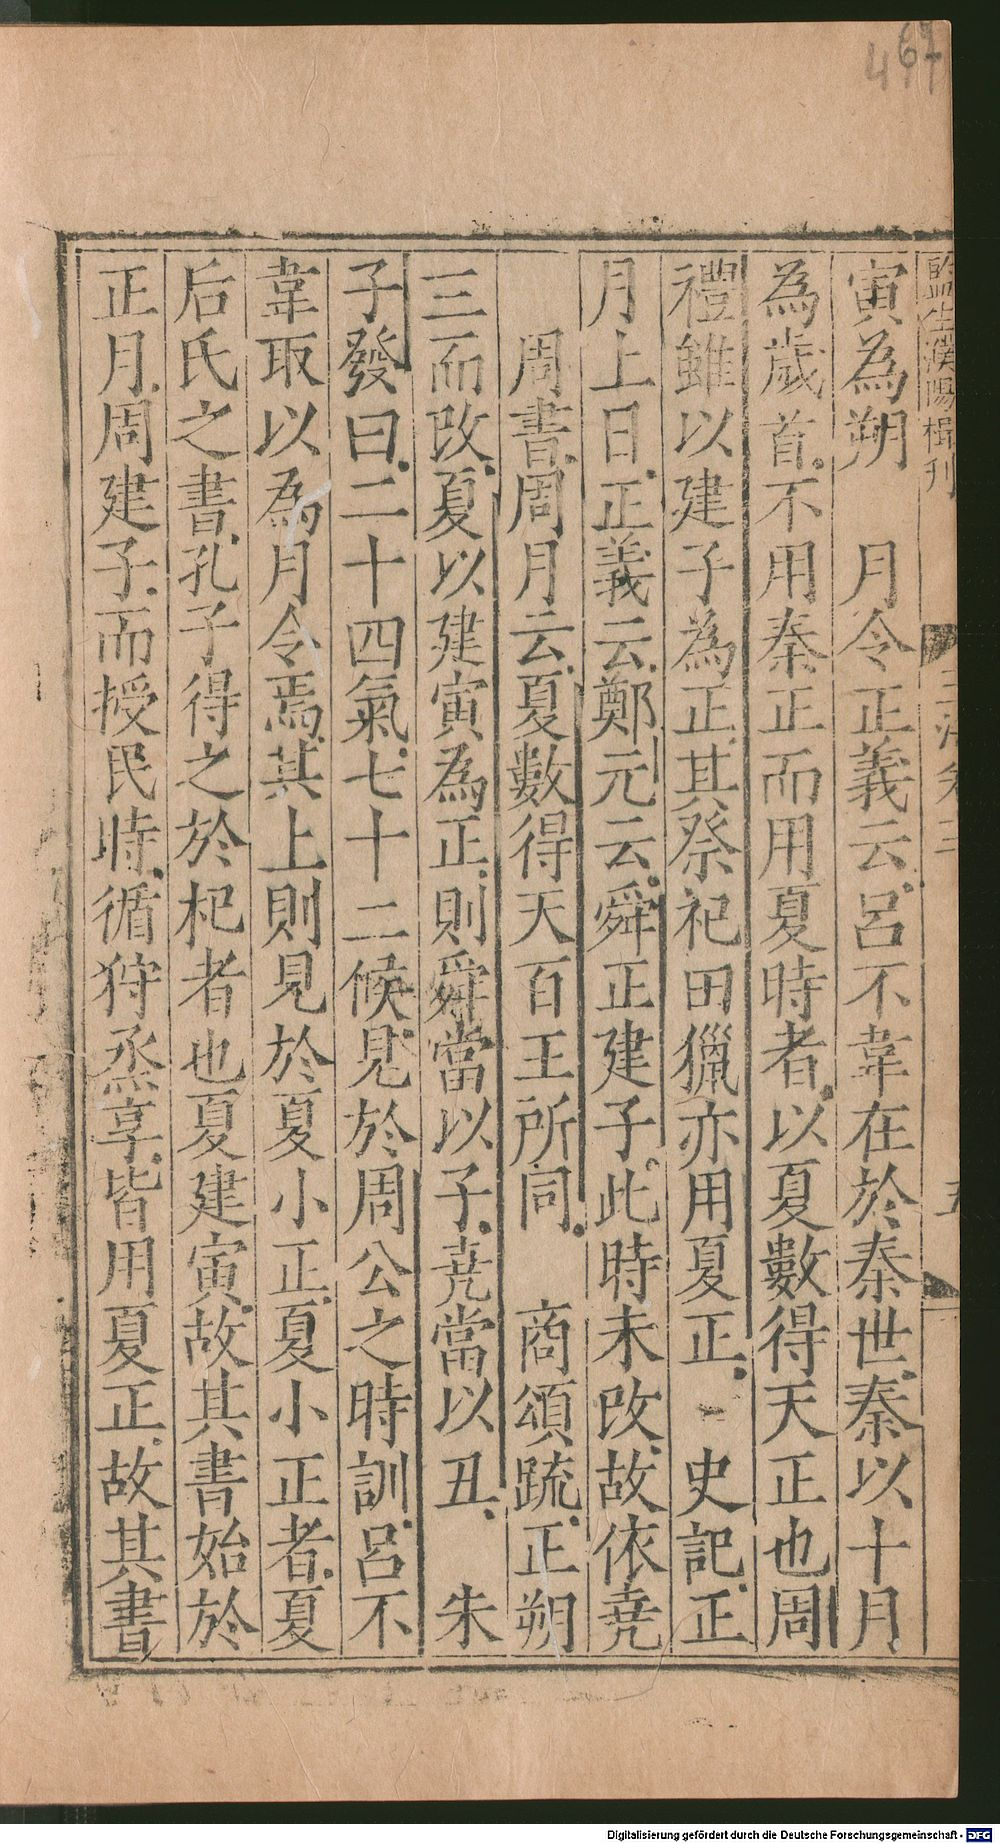 467
監生濮陽楫刊
玉海卷三
五
寅為朔　月令正義云呂不韋在於秦世秦以十月
為歲首不用秦正而用夏時者以夏數得天正也周
禮雖以建子為正其祭祀田獵亦用夏正　史記正
月上日正義云鄭元云舜正建子此時未改故依堯
周書周月云夏數得天百王所同　商頌䟽正朔
三而改夏以建寅為正則舜當以子堯當以丑　朱
子發曰二十四氣七十二候見於周公之時訓呂不
韋取以為月令焉其上則見於夏小正夏小正者夏
后氏之書孔子得之於杞者也夏建寅故其書始於
正月周建子而授民時循狩烝享皆用夏正故其書
Digitalisierung gefördert durch die Deutsche Forschungsgemeinschaft - DFG